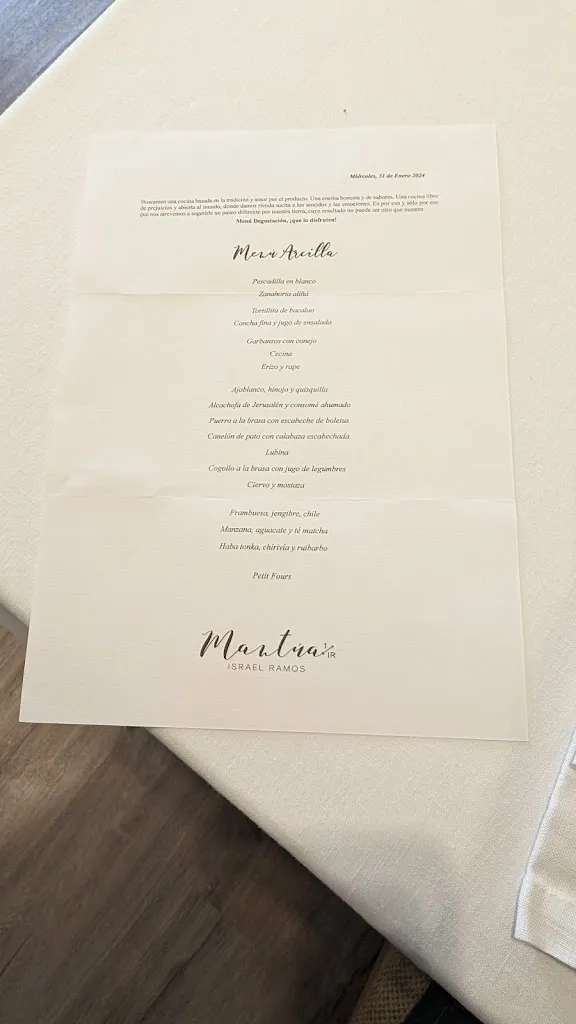 Miércoles, 31 de Enero 2024
Buscamos una cocina basada en la tradición y amor por el producto. Una cocina honesta y de sabores. Una cocina libre
de prejuicios y abierta al mundo, donde damos rienda suelta a los sentidos y las emociones. Es por eso y sólo por eso
que nos atrevemos a sugerirle un paseo diferente por nuestra tierra, cuyo resultado no puede ser otro que nuestro
Menú Degustación, ¡que lo disfruten!
Menú Arcilla
Pescadilla en blanco
Zanahoria aliñá
Tortillita de bacalao
Concha fina y jugo de ensalada
Garbanzos con conejo
Cecina
Erizo y rape
Ajoblanco, hinojo y quisquilla
Alcachofa de Jerusalén y consomé ahumado
Puerro a la brasa con escabeche de boletus
Canelón de pato con calabaza escabechada
Lubina
Cogollo a la brasa con jugo de legumbres
Ciervo y mostaza
Frambuesa, jengibre, chile
Manzana, aguacate y té matcha
Haba tonka, chirivía y ruibarbo
Petit Fours
Mantúa IR
ISRAEL RAMOS